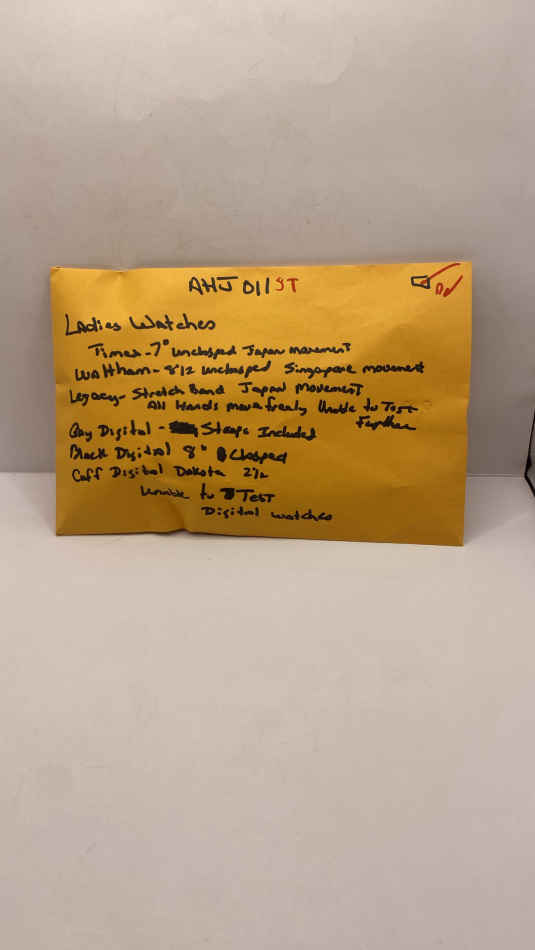 AHJ 011 ST
Ladies Watches
Timex - 7" unclasped Japan movement
Waltham - 8 1/2 unclasped Singapore movement
Legacy - Stretch Band Japan Movement
All Hands move freely Unable to Test
Further
Digital - Straps Included
Black Digital 8" Clasped
Cuff Digital Dakota 2 1/2
Unable to Test
Digital watches